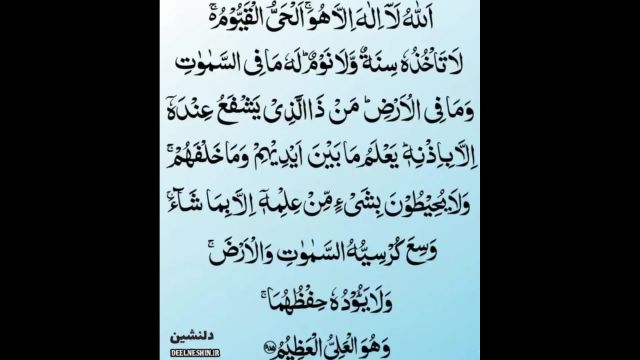 اَللّٰهُ لَاۤ اِلٰهَ اِلَّا هُوَۚ اَلْحَیُّ الْقَیُّوْمُ ەۚ
لَا تَاْخُذُهٗ سِنَةٌ وَّ لَا نَوْمٌؕ لَهٗ مَا فِی السَّمٰوٰتِ
وَ مَا فِی الْاَرْضِؕ مَنْ ذَا الَّذِیْ یَشْفَعُ عِنْدَهٗۤ
اِلَّا بِاِذْنِهٖؕ یَعْلَمُ مَا بَیْنَ اَیْدِیْهِمْ وَ مَا خَلْفَهُمْۚ
وَ لَا یُحِیْطُوْنَ بِشَیْءٍ مِّنْ عِلْمِهٖۤ اِلَّا بِمَا شَآءَۚ
وَسِعَ كُرْسِیُّهُ السَّمٰوٰتِ وَ الْاَرْضَۚ
وَ لَا یَـُٔوْدُهٗ حِفْظُهُمَاۚ
وَ هُوَ الْعَلِیُّ الْعَظِیْمُ ﴿۲۵۵﴾
دلنشین
DEELNESHIN.IR